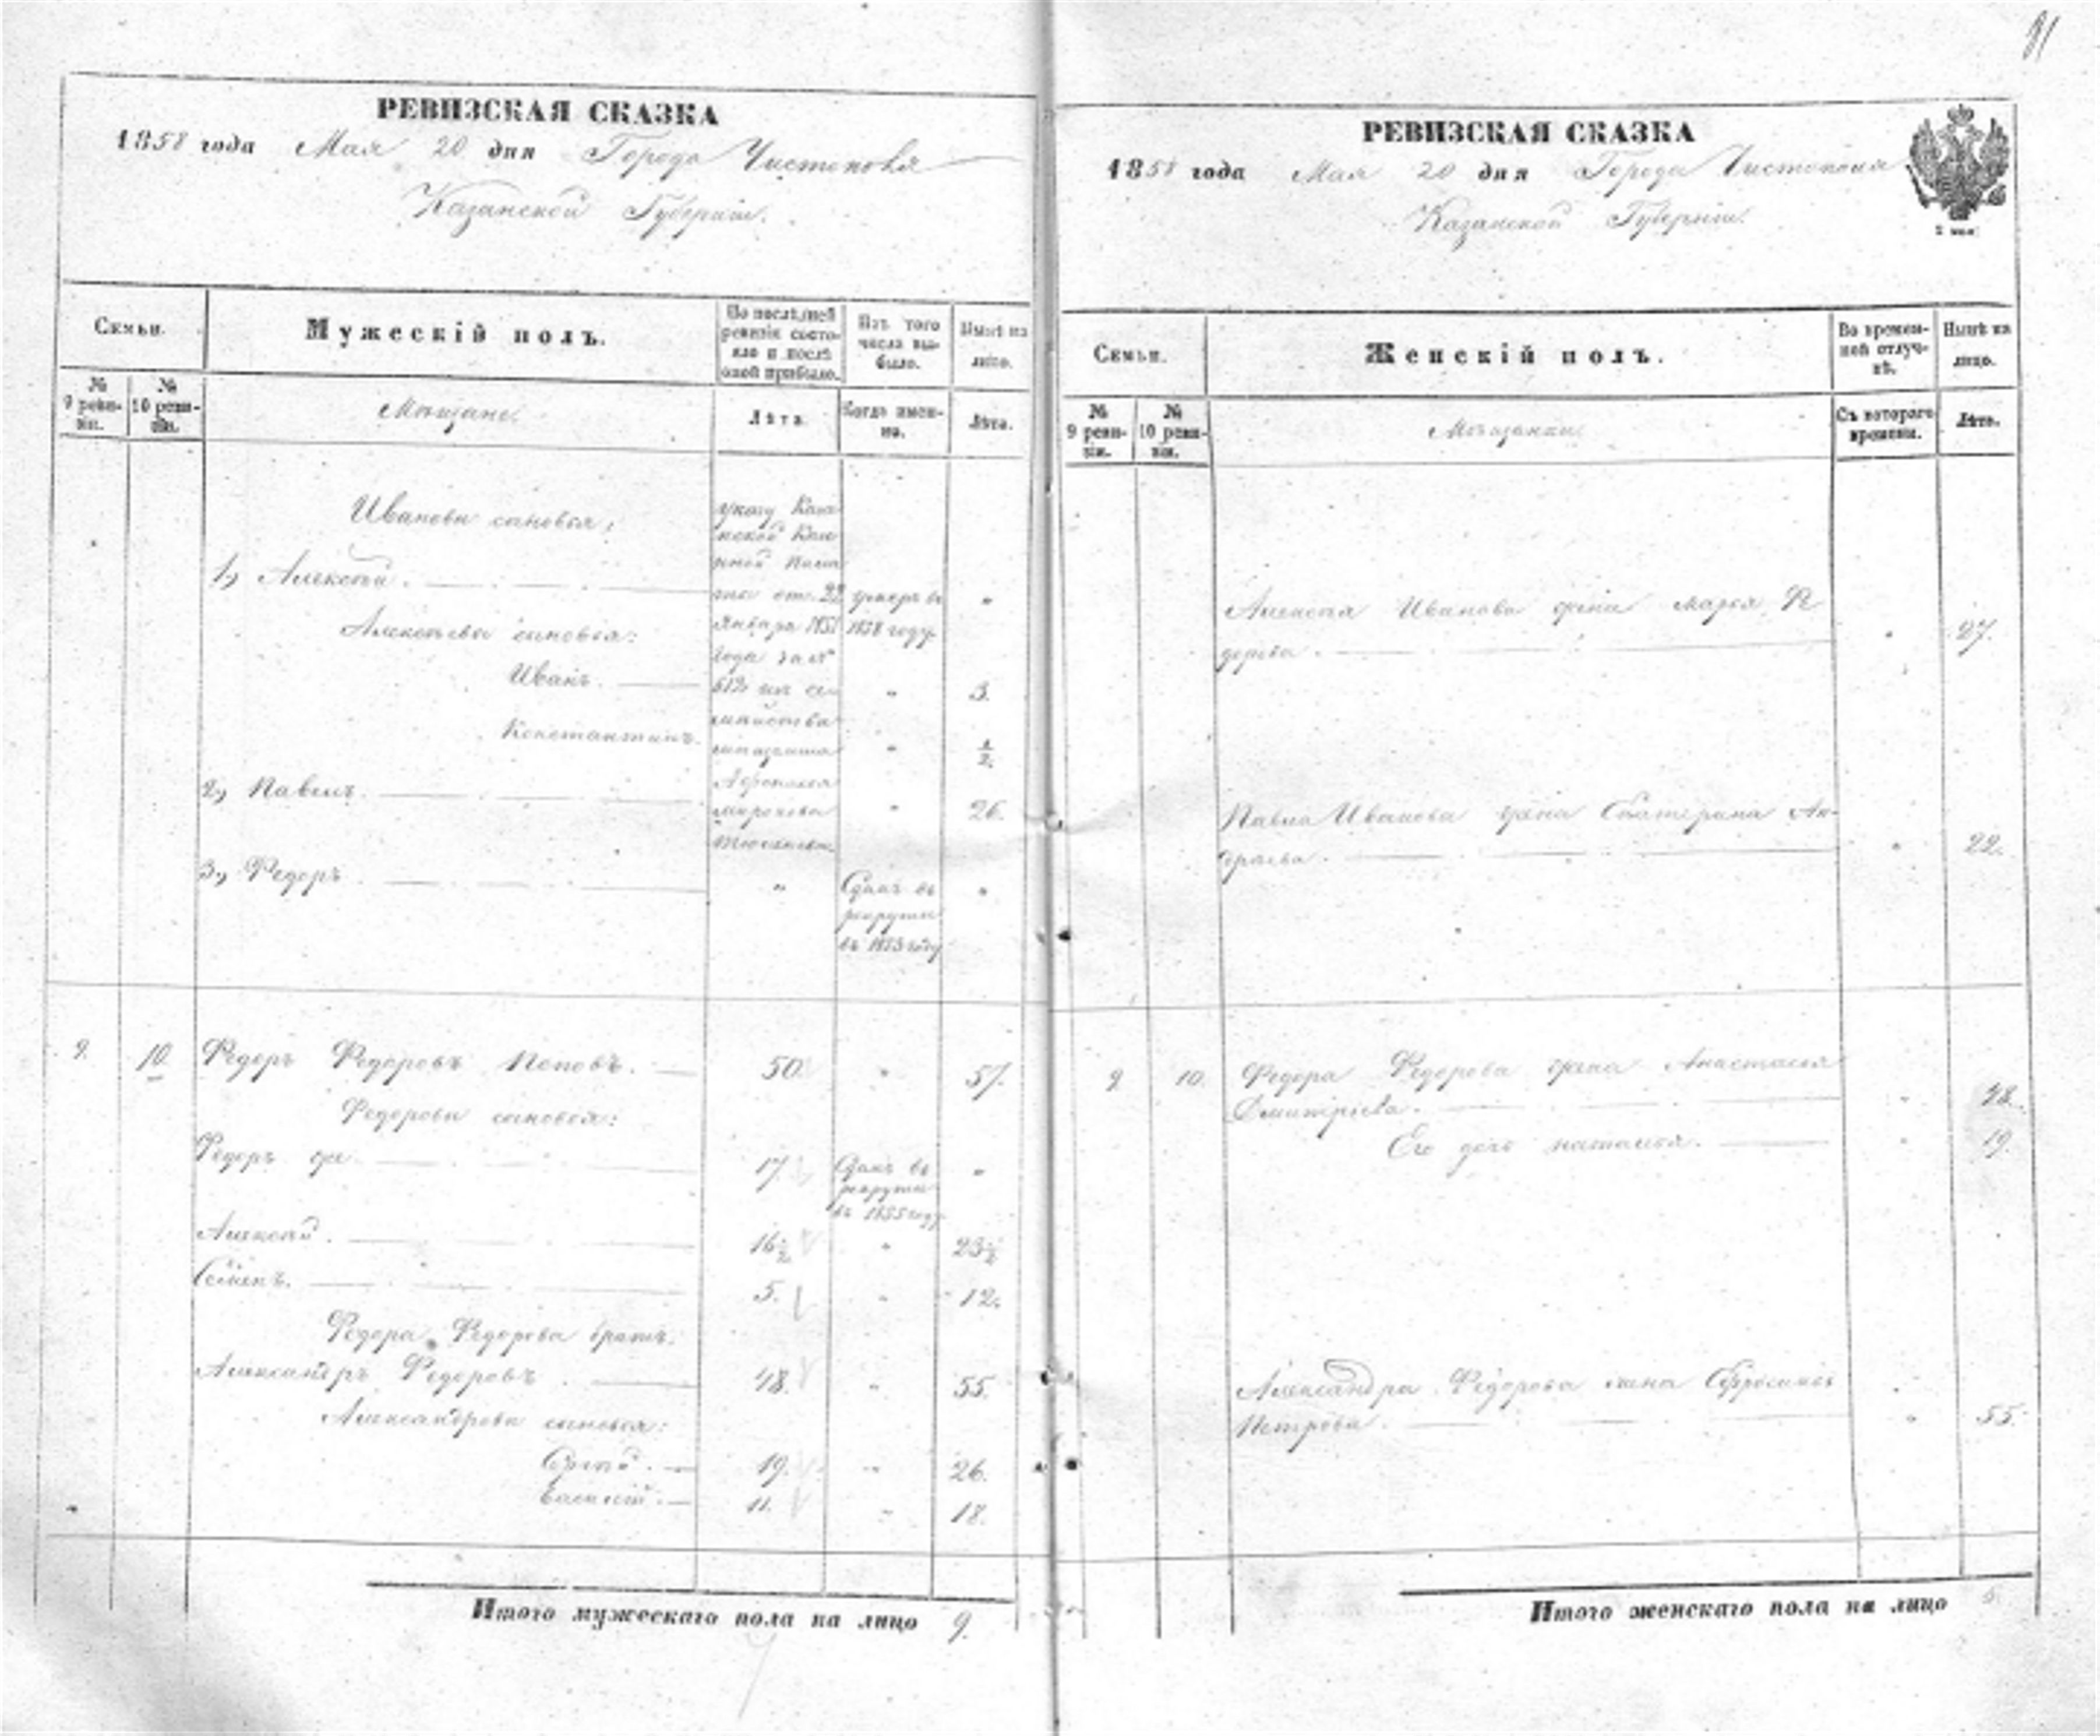 81
РЕВИЗСКАЯ СКАЗКА
1858 года Мая 20 дня Города Чистополя
Казанской Губерніи.
Семьи.
Мужескій полъ.
По послѣдней
ревизіи состо-
яло и послѣ
оной прибыло.
Изъ того
числа вы-
было.
Нынѣ на
лицо.
№
9 реви-
зіи.
№
10 реви-
зіи.
Мѣщане.
Лѣта.
Когда имен-
но.
Лѣта.
Ивановы сыновья:
1) Алексѣй.
Алексѣевы сыновья:
Иванъ.
Константинъ.
2) Павелъ.
3) Федоръ
указу Каза
нской Каз
нной Пала
ты от 22
Января 1851
года за №
612 из се
мейства
мѣщанина
умеръ въ
1858 году
"
" 3.
" 1/2
" 26.
" Сданъ въ "
рекруты
въ 1853 году
9. 10. Федоръ Федоровъ Поповъ. 50. " 57.
Федоровы сыновья:
Федоръ 17. Сданъ въ "
рекруты
въ 1855 году
Алексѣй. 16 1/2 " 23 1/2
Семенъ. 5. " 12.
Федора Федорова братъ.
Александръ Федоровъ 48. " 55.
Александровы сыновья:
Сергѣй. 19. " 26.
Василій. 11. " 18.
Итого мужескаго пола на лицо 9.
РЕВИЗСКАЯ СКАЗКА
1858 года Мая 20 дня Города Чистополя
Казанской Губерніи.
Семьи.
Женскій полъ.
Во времен-
ной отлуч-
кѣ.
Нынѣ на
лицо.
№
9 реви-
зіи.
№
10 реви-
зіи.
Мѣщанки
Съ котораго
времени.
Лѣта.
Алексѣя Иванова жена Марья Ѳе
дорова. " 27.
Павла Иванова жена Екатерина Ан-
дреева. " 22.
9. 10. Федора Федорова жена Анастасья
Дмитріева. " 48.
Его дочь Наталья. " 19.
Александра Федорова жена Ефросинья
Петрова. " 55.
Итого женскаго пола на лицо 5.